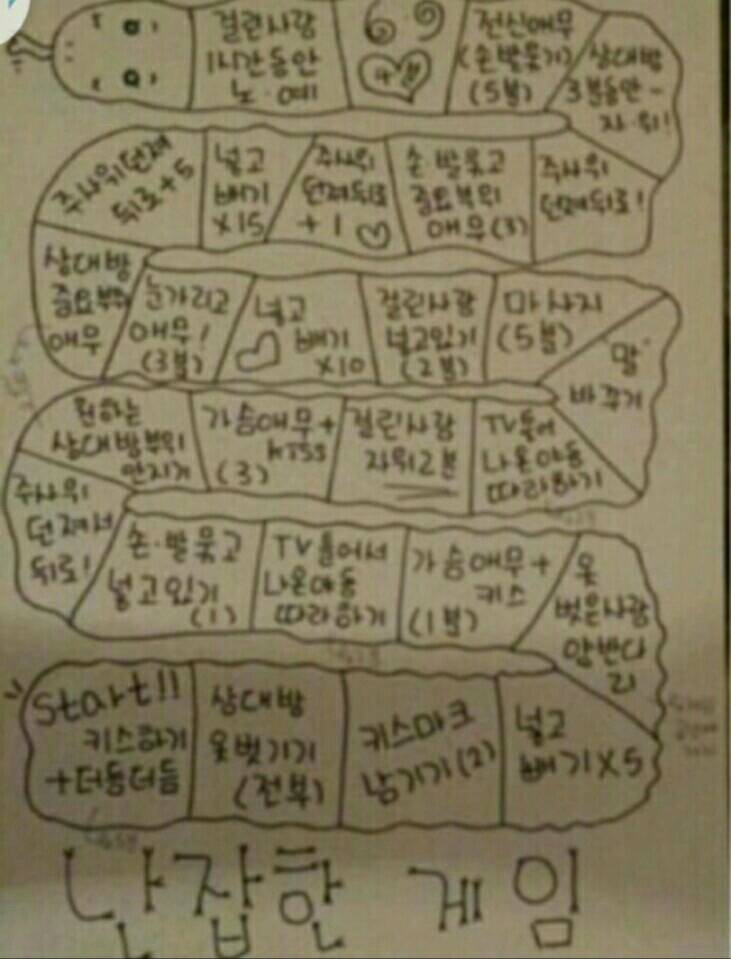 걸린사람
1시간동안
노·예
69
4분
전신애무
(손발묶기)
(5분)
상대방
3분동안-
자·위!
주사위던져
뒤로+5
넣고
빼기
X15
주사위
던져뒤로
+1
손·발묶고
중요부위
애무(3)
주사위
던져뒤로!
상대방
중요부위
애무
눈가리고
애무!
(3분)
넣고
빼기
X10
걸린사람
넣고있기
(2분)
마사지
(5분)
"말"
바꾸기
원하는
상대방부위
만지기
가슴애무+
kiss
(3)
걸린사람
자위2분
TV틀어
나온야동
따라하기
주사위
던져서
뒤로!
손·발묶고
넣고있기
(1)
TV틀어서
나온야동
따라하기
가슴애무+
키스
(1분)
옷
벗은사람
앙반다
리
start!!
키스하기
+더듬더듬
상대방
옷벗기기
(전부)
키스마크
남기기(2)
넣고
빼기X5
난잡한 게임